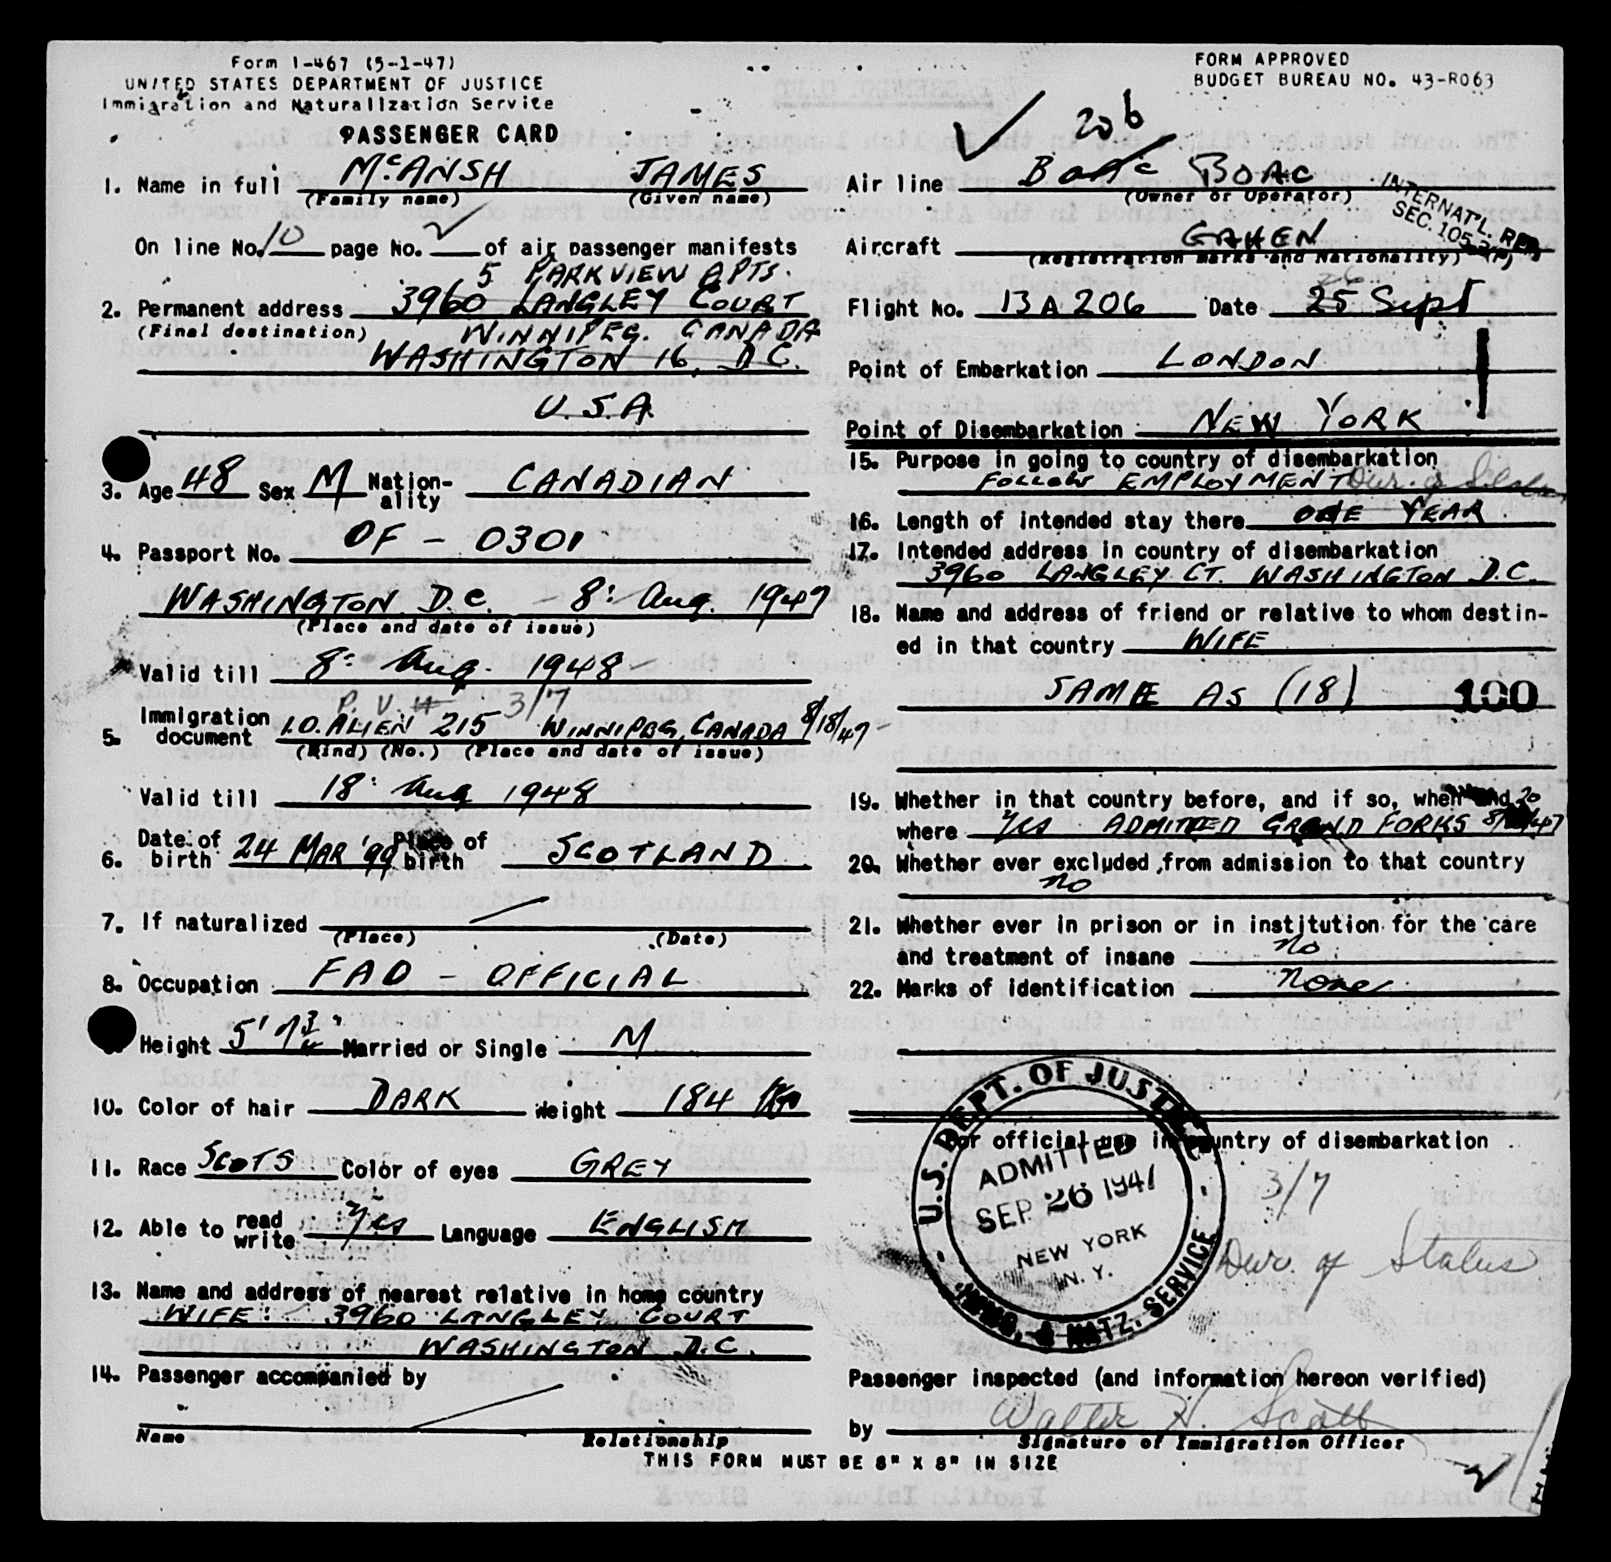 Form I-467 (5-1-47)
UNITED STATES DEPARTMENT OF JUSTICE
Immigration and Naturalization Service
PASSENGER CARD
FORM APPROVED
BUDGET BUREAU NO. 43-R063
206
1. Name in full McANSH JAMES
(Family name) (Given name)
On line No. 10 page No. of air passenger manifests
5 PARKVIEW APTS.
2. Permanent address 3960 LANGLEY COURT
(Final destination) WINNIPEG. CANADA
WASHINGTON 16, D.C.
U.S.A.
3. Age 48 Sex M Nation-ality CANADIAN
4. Passport No. OF - 0301
WASHINGTON D.C. - 8: Aug. 1947
(Place and date of issue)
Valid till 8: Aug. 1948
P. V. 4 3/7
5. Immigration document I.O. ALIEN 215 WINNIPEG, CANADA 8/18/47
(Kind) (No.) (Place and date of issue)
Valid till 18: Aug 1948
6. Date of birth 24 MAR '99 Place of birth SCOTLAND
7. If naturalized
(Place) (Date)
8. Occupation FAO - OFFICIAL
Height 5' 7 Married or Single M
10. Color of hair DARK Weight 184
11. Race SCOTS Color of eyes GREY
12. Able to read write Yes Language ENGLISH
13. Name and address of nearest relative in home country
WIFE: 3960 LANGLEY COURT
WASHINGTON D.C.
14. Passenger accompanied by
Name Relationship
Air line BOAC BOAC
(Owner or Operator)
INTERNAT'L. REG.
SEC. 105.3(F)
Aircraft GAHEN
(Registration marks and Nationality)
26
Flight No. 13A206 Date 25 Sept
Point of Embarkation LONDON
Point of Disembarkation NEW YORK
15. Purpose in going to country of disembarkation
FOLLOW EMPLOYMENT Dur. of Status
16. Length of intended stay there ONE YEAR.
17. Intended address in country of disembarkation
3960 LANGLEY CT. WASHINGTON D.C.
18. Name and address of friend or relative to whom destin-
ed in that country WIFE
SAME AS (18) 100
19. Whether in that country before, and if so, when and
where Yes ADMITTED GRAND FORKS
20. Whether ever excluded from admission to that country
no
21. Whether ever in prison or in institution for the care
and treatment of insane no
22. Marks of identification None
For official use in country of disembarkation
U.S. DEPT. OF JUSTICE
ADMITTED
SEP 26 1947
NEW YORK
N. Y.
IMMG. & NATZ. SERVICE
3/7
Dur. of Status
Passenger inspected (and information hereon verified)
by Walter H. Scott
Signature of Immigration Officer
THIS FORM MUST BE 8" X 8" IN SIZE